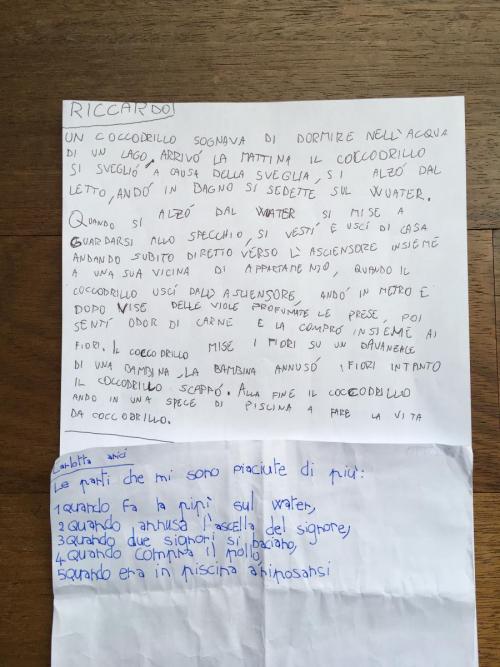 RICCARDO!
UN COCCODRILLO SOGNAVA DI DORMIRE NELL'ACQUA
DI UN LAGO, ARRIVÓ LA MATTINA IL COCCODRILLO
SI SVEGLIÓ A CAUSA DELLA SVEGLIA, SI ALZÓ DAL
LETTO, ANDÓ IN BAGNO SI SEDETTE SUL WUATER.
QUANDO SI ALZÓ DAL WATER SI MISE A
GUARDARSI ALLO SPECCHIO, SI VESTÍ E USCÍ DI CASA
ANDANDO SUBITO DIRETTO VERSO L'ASCIENSORE INSIEME
A UNA SUA VICINA DI APPARTAMENTO, QUANDO IL
COCCODRILLO USCÍ DALL'ASCIENSORE, ANDÓ IN METRO E
DOPO VISE DELLE VIOLE PROFUMATE LE PRESE, POI
SENTÍ ODOR DI CARNE E LA COMPRÓ INSIEME AI
FIORI. IL COCCODRILLO MISE I FIORI SU UN DAVANZALE
DI UNA BAMBINA, LA BAMBINA ANNUSÓ I FIORI INTANTO
IL COCCODRILLO SCAPPÓ. ALLA FINE IL COCCODRILLO
ANDO IN UNA SPECE DI PISCINA A FARE LA VITA
DA COCCODRILLO.
Carlotta
Le parti che mi sono piaciute di più:
1 Quando fa la pipì sul water,
2 Quando annusa l'ascella del signore,
3 Quando due signori si baciano,
4 Quando compra il pollo
5 quando era in piscina a riposarsi